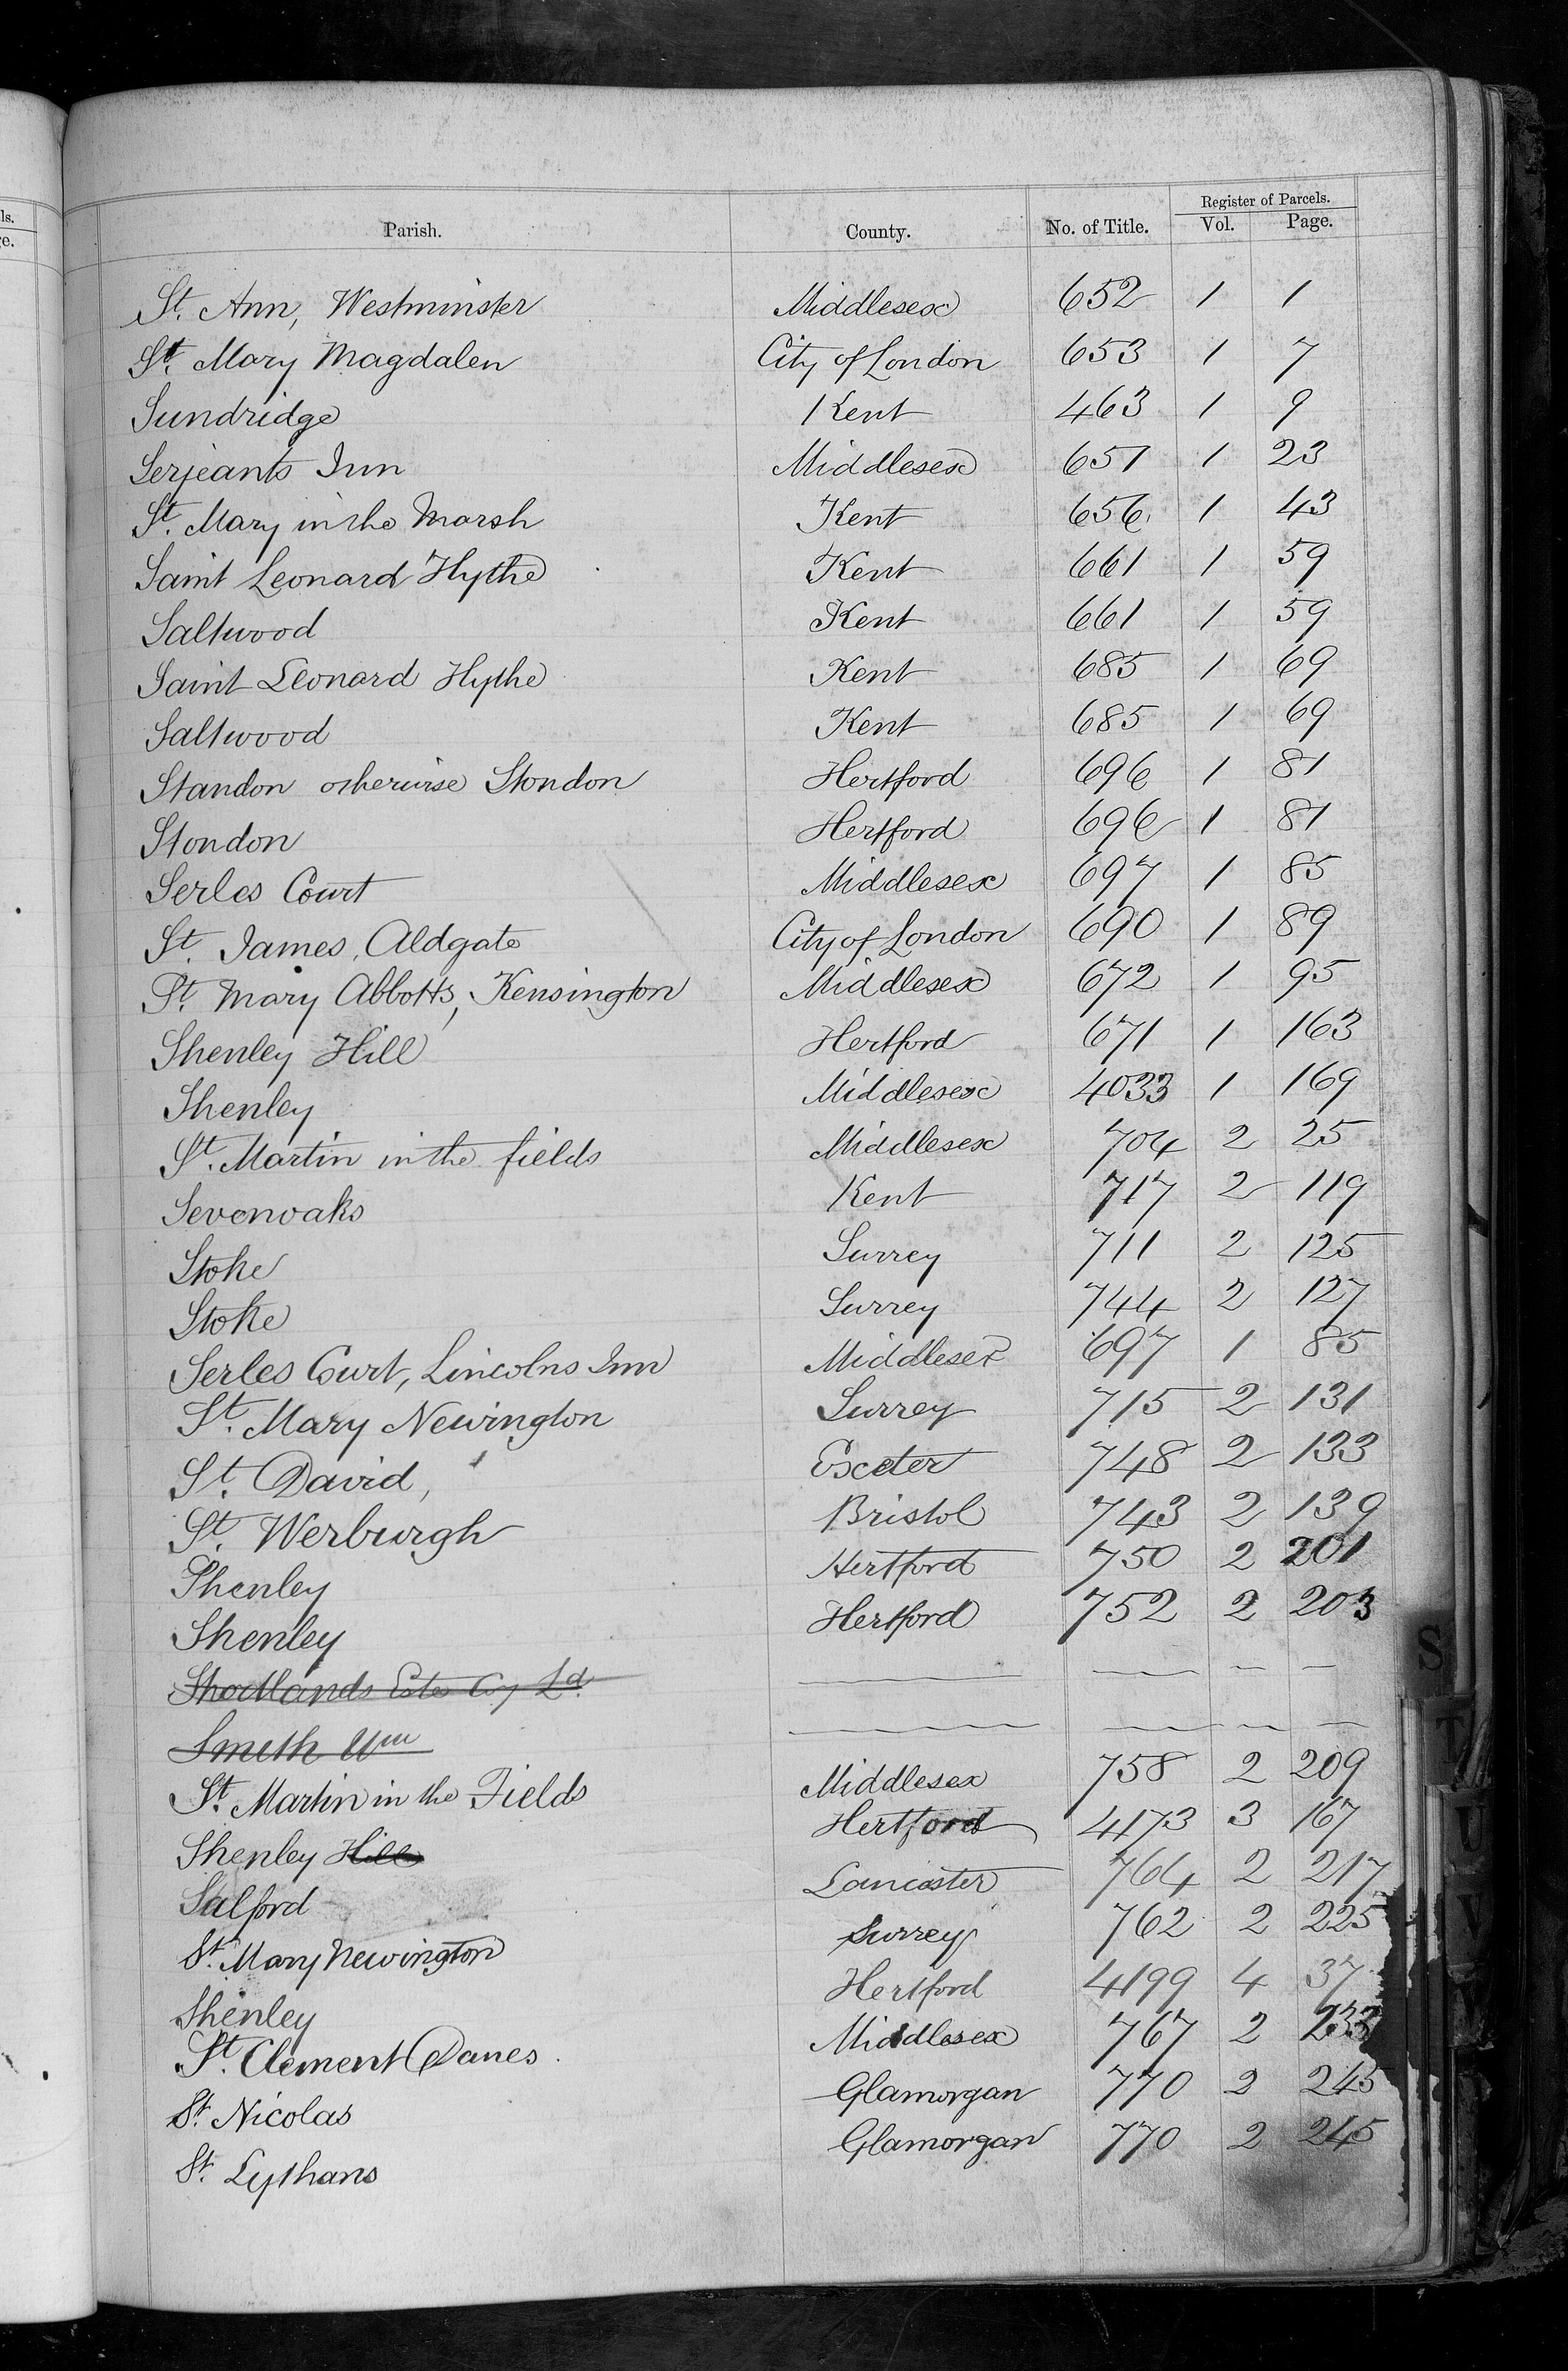 ls.
e.
Register of Parcels.
Parish. County. No. of Title. Vol. Page.
St. Ann, Westminster Middlesex 652 1 1
St. Mary Magdalen City of London 653 1 7
Sundridge Kent 463 1 9
Serjeants Inn Middlesex 651 1 23
St. Mary in the Marsh Kent 656 1 43
Saint Leonard Hythe Kent 661 1 59
Saltwood Kent 661 1 59
Saint Leonard Hythe Kent 685 1 69
Saltwood Kent 685 1 69
Standon otherwise Stondon Hertford 696 1 81
Stondon Hertford 696 1 81
Serles Court Middlesex 697 1 85
St. James, Aldgate City of London 690 1 89
St. Mary Abbotts, Kensington Middlesex 672 1 95
Shenley Hill Hertford 671 1 163
Shenley Middlesex 4033 1 169
St. Martin in the fields Middlesex 704 2 25
Sevenoaks Kent 717 2 119
Stoke Surrey 711 2 125
Stoke Surrey 744 2 127
Serles Court, Lincolns Inn Middlesex 697 1 85
St. Mary Newington Surrey 715 2 131
St. David, Exeter 748 2 133
St. Werburgh Bristol 743 2 139
Shenley Hertford 750 2 201
Shenley Hertford 752 2 203
Shortlands Este Coy Ld. — — — —
Smith Wm — — — —
St. Martin in the Fields Middlesex 758 2 209
Shenley Hill Hertford 4173 3 167
Salford Lancaster 764 2 217
St. Mary Newington Surrey 762 2 225
Shenley Hertford 4199 4 37
St. Clement Danes Middlesex 767 2 233
St. Nicolas Glamorgan 770 2 245
St. Lythans Glamorgan 770 2 245
S
T
U
V